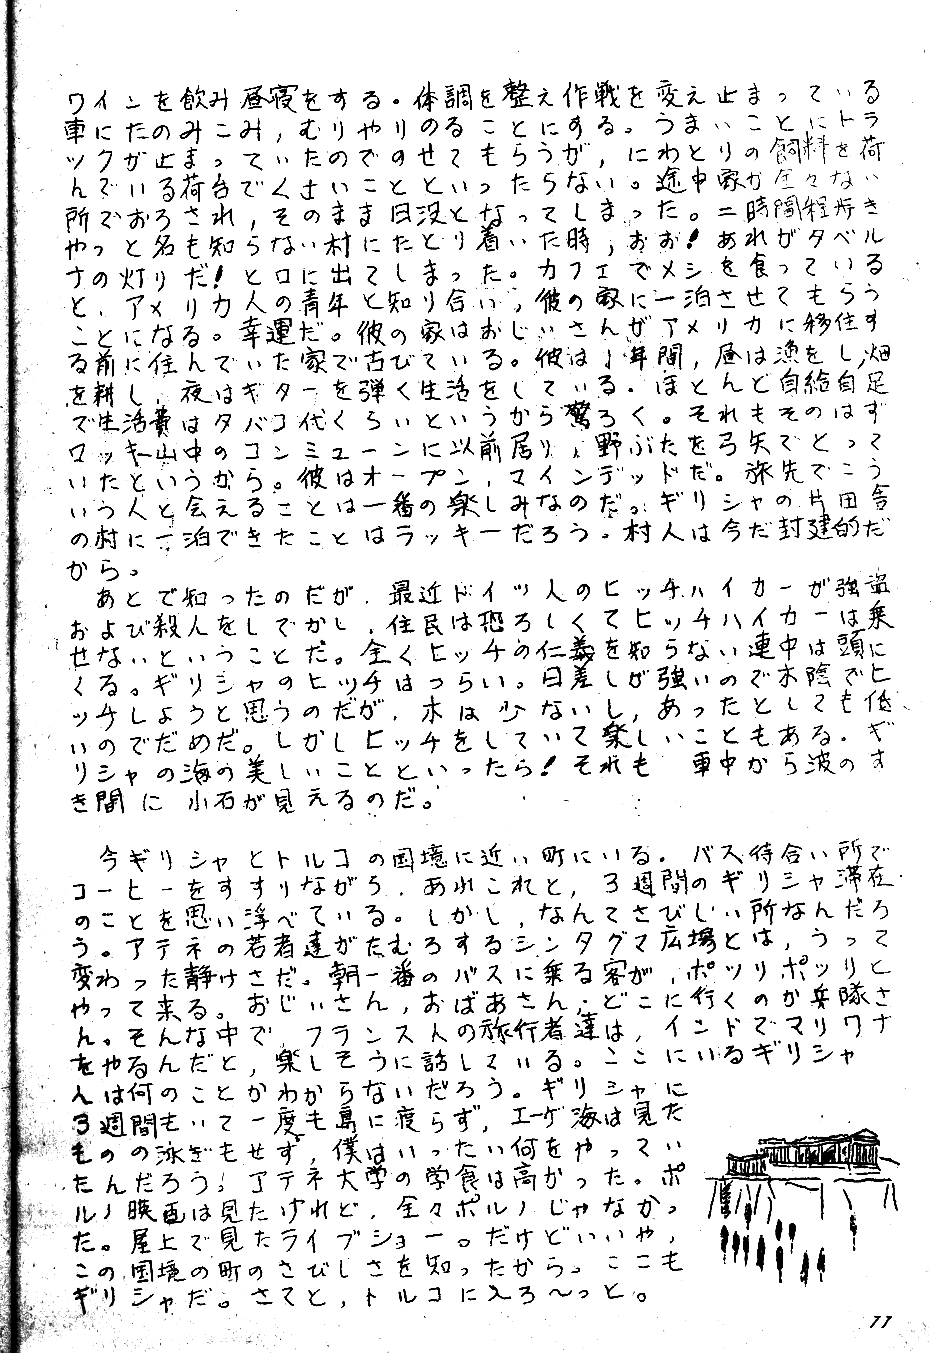 ワインを飲み昼寝をする。体調を整え作戦を変え止まっている
車にたのみこみ,むりやりのることにする。うまいことにトラ
ックが止まっていたのでのせてもらうが,にわとりの飼料を荷
んでいる荷台でくさいことといったらない。途中家が全々ない
所でおろされ,そのまま日没となってしまった。二時間程歩き
やっと名も知らない村にたどり着いた時,おお!あれがタベル
ナの灯りだ!と口に出てしまった。カフェでメシを食っている
と,アメリカ人の青年と知り合い,彼の家に泊めさせてもらう
ことになる。幸運だ。彼の家はおじいさんがアメリカに移住す
る前に住んでいた家で古びている。彼は1年間,昼は漁をし,畑
を耕し,夜はギターを弾く生活をしている・ほとんど自給自足
で生活費はタバコ代くらいというから驚く。それもそのはず
ロッキー山中のコミューンに以前居り,野ぶたを弓矢でとって
いたというから。彼はオープン,マインデッドだ。旅先でこう
いう人と会えることは一番の楽しみなのだ。ギリシャの片田舎
の村に一泊できたことはラッキーだろう。村人は今だ封建的だ
から。
あとで知ったのだが,最近ドイツ人のヒッチハイカーが強盗
および殺人をしでかし,住民は恐ろしくてヒッチハイカーは乗
せないということだ。全くヒッチの仁義を知らない連中は頭に
くる。ギリシャのヒッチはつらい。日差しが強いので木陰でヒ
ッチしようと思うのだが,木は少ないし,あったとしても低
いのでだめだ。しかしヒッチをしていて楽しいこともある。ギ
リシャの海の美しいことといったら!それも 車中から波のす
き間に 小石が見えるのだ。
今ギリシャとトルコの国境に近い町にいる。バス待合い所で
コーヒーをすすりながら,あれこれと,3週間のギリシャ滞在
のことを思い浮べている。しかし,なんてさびしい所なんだろ
う。アテネの若者達がたむろするシンタグマ広場とは,うって
変わった静けさだ。朝一番のバスに乗る客が,ポツリポツリと
やって来る。おじいさん,おばあさん・どこに行くのか兵隊さ
ん。そんな中で,フランス人の旅行者達は,インドでマリワナ
をやるんだと,楽しそうに話している。ここにいるギリシャ
人は何のことかわからないだろう。ギリシャに
3週間もいて一度も島に渡らず,エーゲ海は見た
ものの泳ぎもせず,僕はいったい何をやってい
たんだろう!アテネ大学の学食は高かった。ポ
ルノ映画は見たけれど,全々ポルノじゃなかっ
た。屋上で見たライブショー。だけどいやも
この国境の町のさびしさを知ったから ここ
ギリシャだ。さてと,トルコに入ろ〜っと。
77